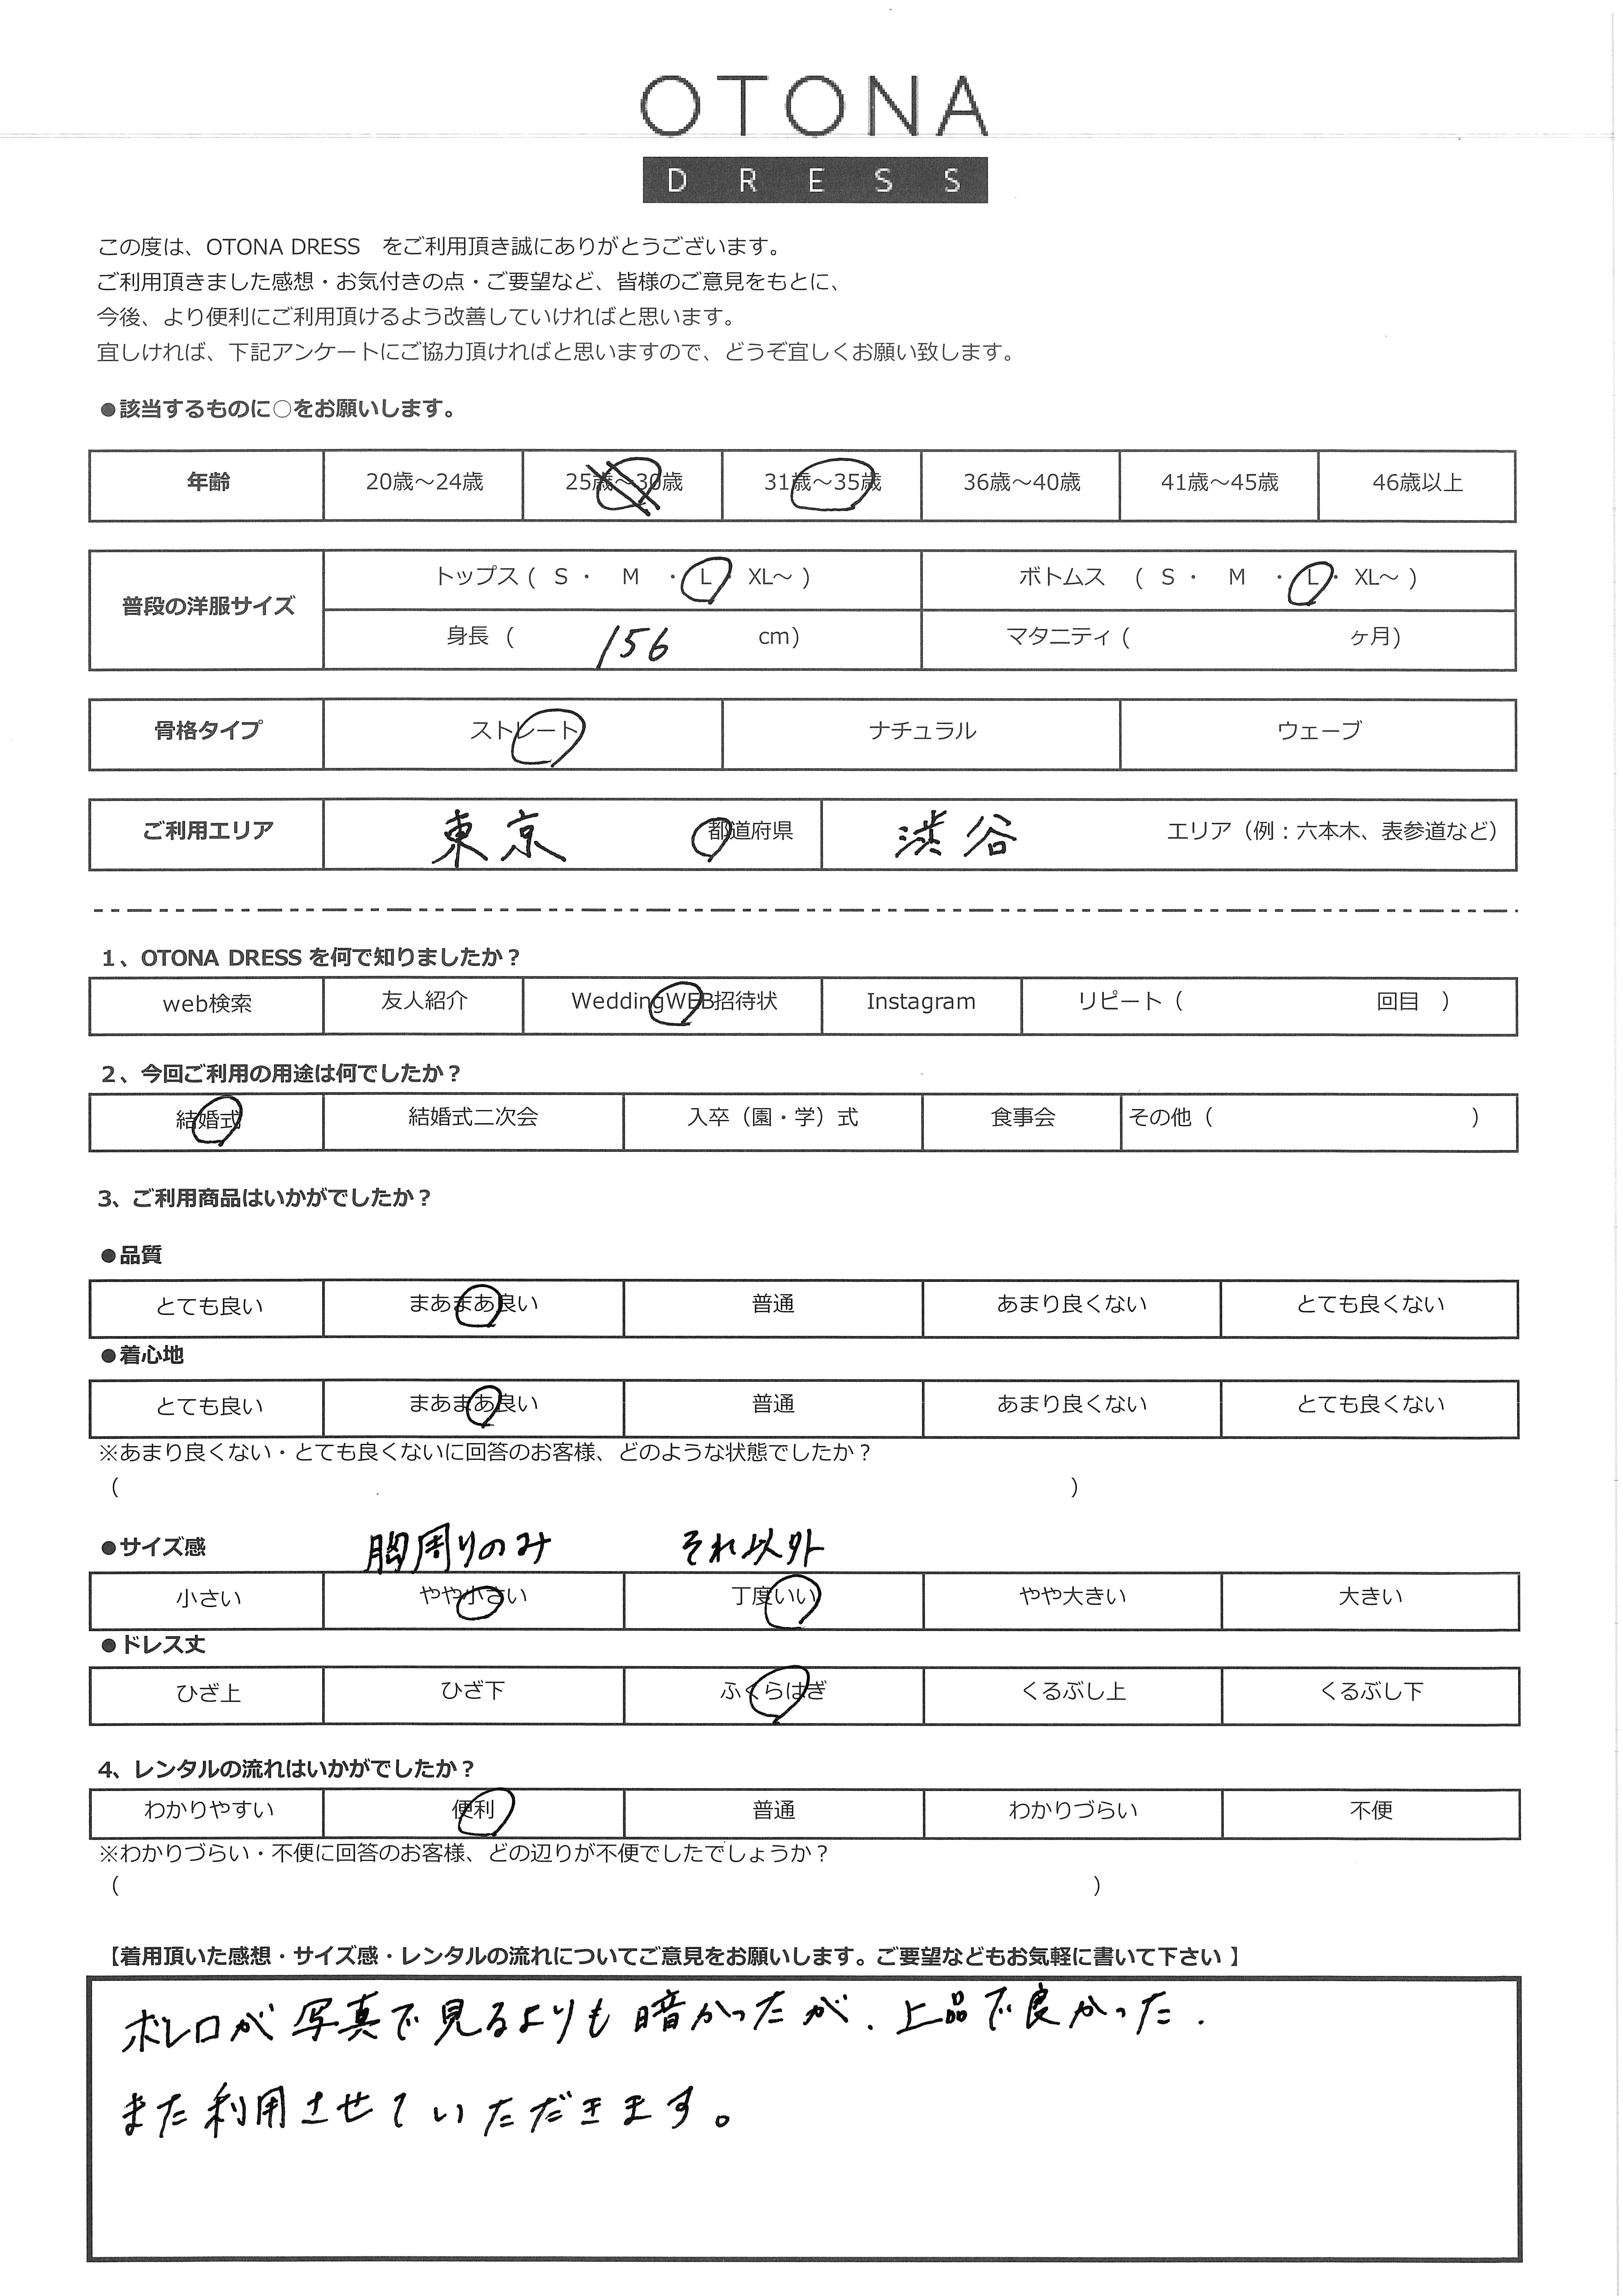 OTONA
DRESS
この度は、OTONA DRESS　をご利用頂き誠にありがとうございます。
ご利用頂きました感想・お気付きの点・ご要望など、皆様のご意見をもとに、
今後、より便利にご利用頂けるよう改善していければと思います。
宜しければ、下記アンケートにご協力頂ければと思いますので、どうぞ宜しくお願い致します。
●該当するものに○をお願いします。
年齢 20歳～24歳 25歳～30歳 31歳～35歳 36歳～40歳 41歳～45歳 46歳以上
普段の洋服サイズ トップス ( S ・ M ・ L ・ XL～ ) ボトムス ( S ・ M ・ L ・ XL～ )
身長 ( 156 cm) マタニティ ( ヶ月)
骨格タイプ ストレート ナチュラル ウェーブ
ご利用エリア 東京 都道府県 渋谷 エリア（例：六本木、表参道など）
1、OTONA DRESS を何で知りましたか？
web検索 友人紹介 WeddingWEB招待状 Instagram リピート（ 回目 ）
2、今回ご利用の用途は何でしたか？
結婚式 結婚式二次会 入卒（園・学）式 食事会 その他（ ）
3、ご利用商品はいかがでしたか？
●品質
とても良い まあまあ良い 普通 あまり良くない とても良くない
●着心地
とても良い まあまあ良い 普通 あまり良くない とても良くない
※あまり良くない・とても良くないに回答のお客様、どのような状態でしたか？
（ ）
●サイズ感 胸周りのみ それ以外
小さい やや小さい 丁度いい やや大きい 大きい
●ドレス丈
ひざ上 ひざ下 ふくらはぎ くるぶし上 くるぶし下
4、レンタルの流れはいかがでしたか？
わかりやすい 便利 普通 わかりづらい 不便
※わかりづらい・不便に回答のお客様、どの辺りが不便でしたでしょうか？
（ ）
【着用頂いた感想・サイズ感・レンタルの流れについてご意見をお願いします。ご要望などもお気軽に書いて下さい 】
ボレロが写真で見るよりも暗かったが、上品で良かった.
また利用させていただきます。